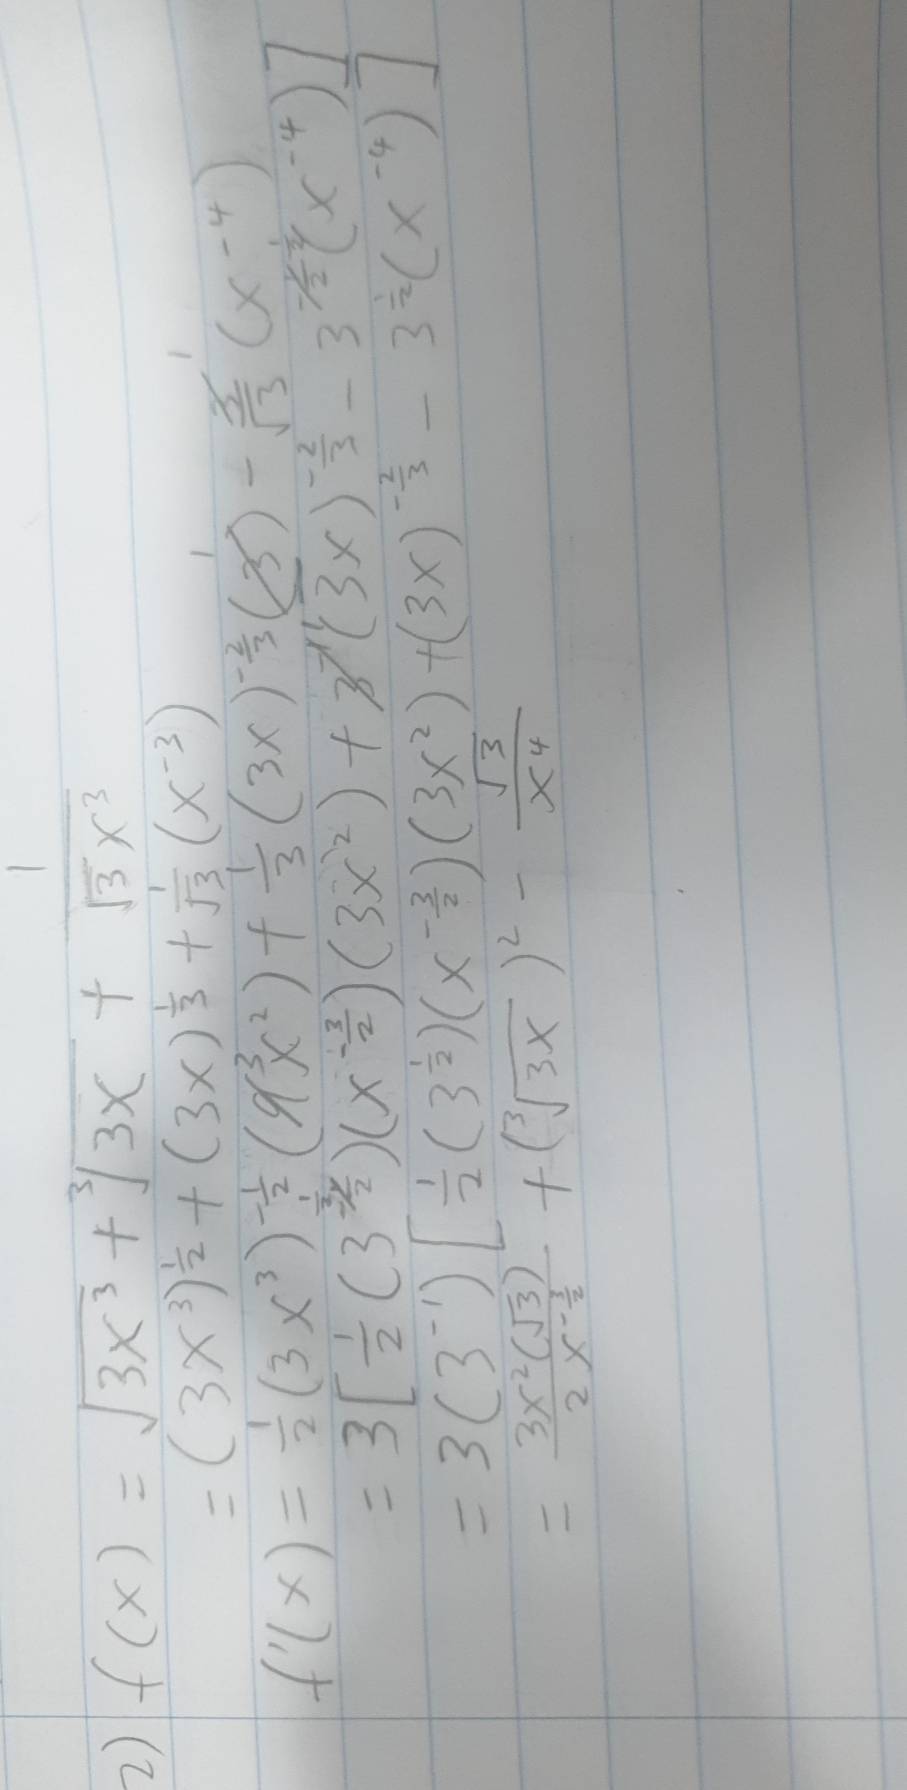 2) f(x) = √(3x³) + ∛(3x) + 1/(√3 x³)
= (3x³)^(1/2) + (3x)^(1/3) + 1/√3 (x⁻³)
f'(x) = 1/2 (3x³)^(-1/2) (9x²) + 1/3 (3x)^(-2/3) (3) - 3/√3 (x⁻⁴)
= 3[1/2 (3^(-1/2))(x^(-3/2))(3x²) + 3⁻¹(3x)^(-2/3) - 3^(-1/2)(x⁻⁴)]
= 3(3⁻¹)[1/2 (3^(1/2))(x^(-3/2))(3x²) + (3x)^(-2/3) - 3^(1/2)(x⁻⁴)]
= 3x²(√3)/(2x^(-3/2)) + (∛(3x))² - √3/x⁴